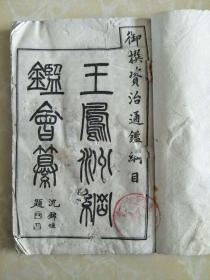 御撰資治通鑑綱目
王鳳洲綱
鑑會纂
沈錦垣
題